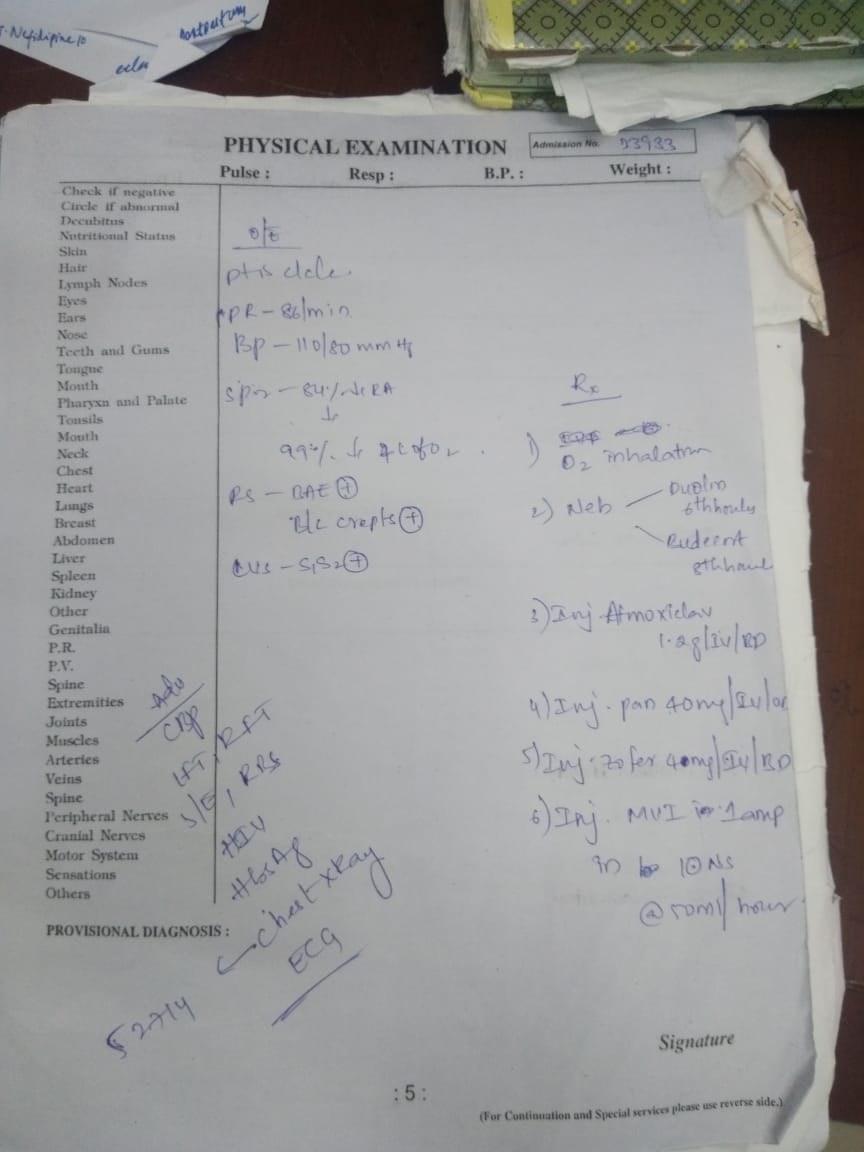 T. Nefidipine 10
PHYSICAL EXAMINATION
Admission No. 23933
Pulse : Resp : B.P. : Weight :
Check if negative
Circle if abnormal
Decubitus
Nutritional Status
Skin
Hair
Lymph Nodes
Eyes
Ears
Nose
Teeth and Gums
Tongue
Mouth
Pharyxn and Palate
Tonsils
Mouth
Neck
Chest
Heart
Lungs
Breast
Abdomen
Liver
Spleen
Kidney
Other
Genitalia
P.R.
P.V.
Spine
Extremities
Joints
Muscles
Arteries
Veins
Spine
Peripheral Nerves
Cranial Nerves
Motor System
Sensations
Others
O/E
pt is c/c/c.
PR - 86/min
BP - 110/80 mmHg
SpO2 - 84% RA
↓
99% of O2
RS - BAE (+)
B/L crepts (+)
CVS - S1S2 (+)
Adv
CBP
LFT, RFT
S/E, RBS
HIV
HbsAg
Chest X Ray
ECG
Rx
1) O2 inhalation
2) Neb - Duolin 6th hourly
Budecort 8th hourly
3) Inj Amoxiclav
1.2g/IV/BD
4) Inj. pan 40mg/IV/OD
5) Inj. zofer 4mg/IV/BD
6) Inj. MVI 1amp
in NS
@ 50ml/hour
PROVISIONAL DIAGNOSIS :
52714
Signature
: 5 :
(For Continuation and Special services please use reverse side.)